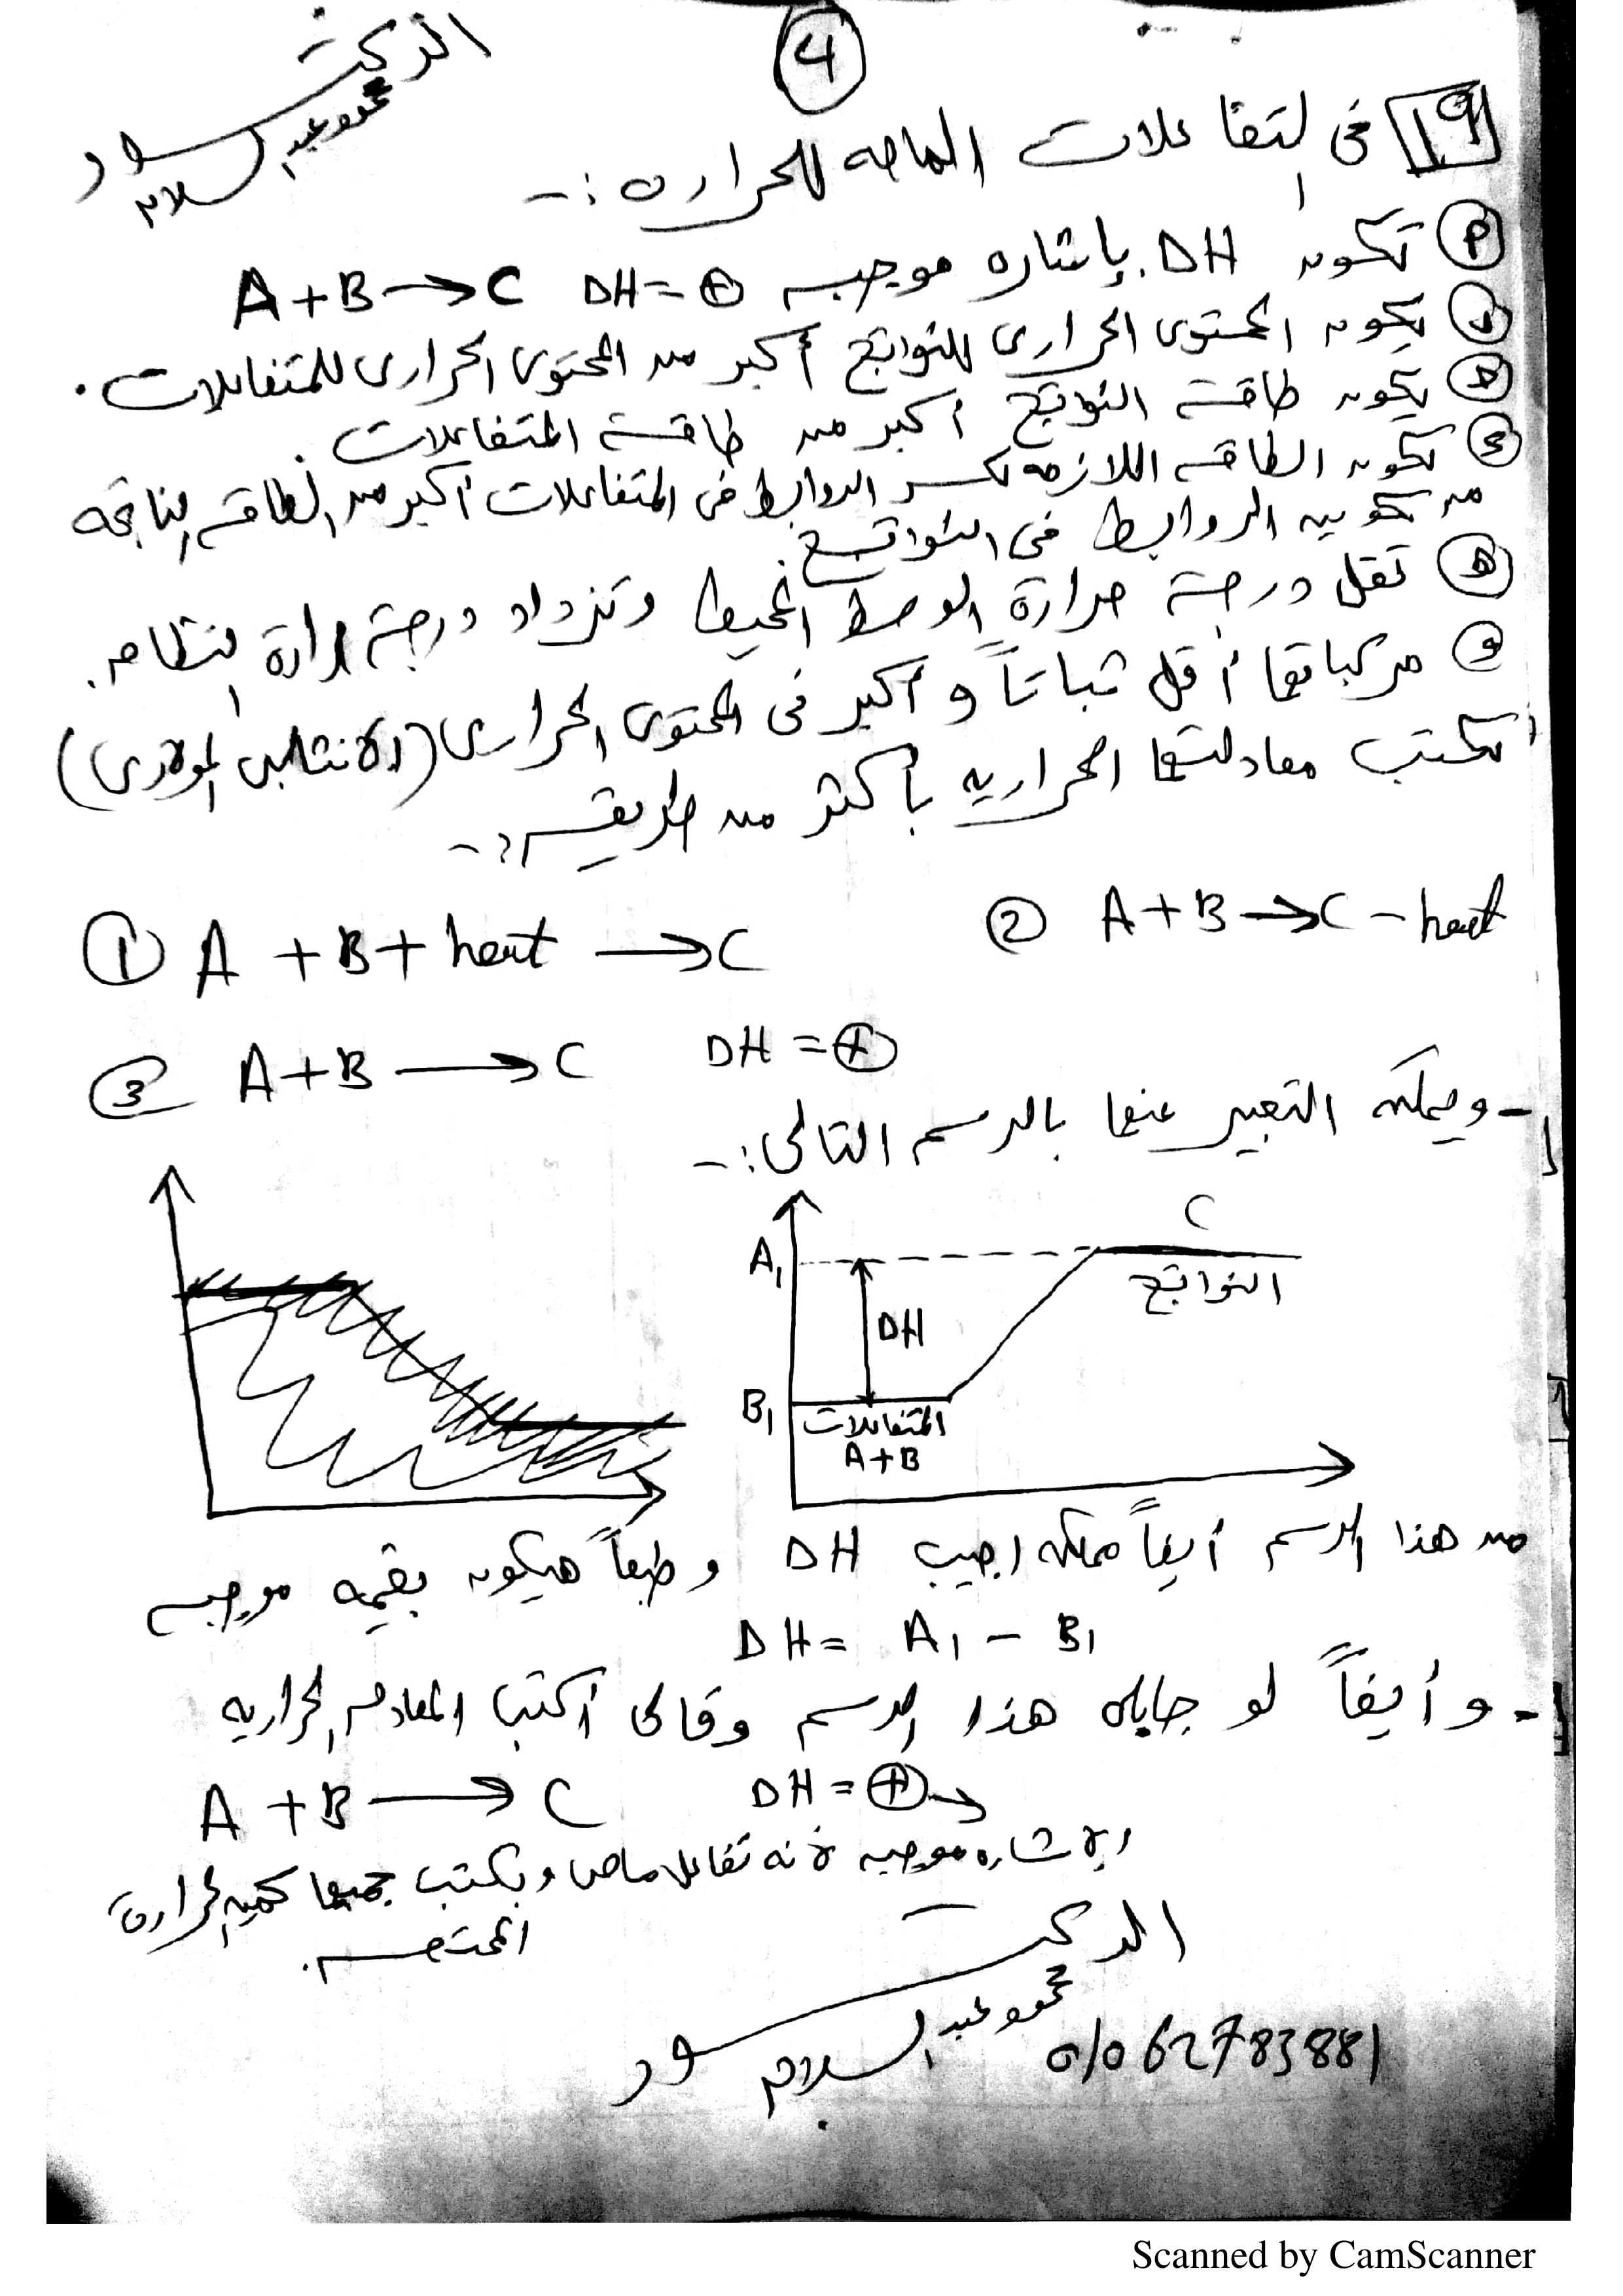 4
الدكتور
محمود عبد السلام
19 فى التفاعلات الماصه للحراره :-
P تكون DH بإشاره موجبه DH = + A + B → C
ب يكون المحتوى الحرارى للنواتج أكبر من المحتوى الحرارى للمتفاعلات .
ج يكون طاقة النواتج أكبر من طاقة المتفاعلات .
د تكون الطاقه اللازمه لكسر الروابط فى المتفاعلات أكبر من الطاقه الناتجه
من تكوين الروابط فى النواتج .
ه تقل درجة حرارة الوسط المحيط وتزداد درجة حرارة النظام .
و مركباتها أقل ثباتاً و أكبر فى المحتوى الحرارى (الانثالبى المولارى)
تكتب معادلتها الحراريه بأكثر من طريقه :-
① A + B + heat → C
② A + B → C - heat
③ A + B → C DH = +
- ويمكن التعبير عنها بالرسم التالى :-
C
A1
النواتج
DH
B1
المتفاعلات
A+B
من هذا الرسم أيضاً ممكن اجيب DH وطبعاً هيكون بقيمه موجبه
DH = A1 - B1
- و أيضاً لو جابلك هذا الرسم وقالى أكتب المعادله الحراريه
A + B → C DH = + →
الاشاره موجبه لأنه تفاعل ماص وبكتب جمبها كمية الحرارة
الممتصه .
الدكتور
محمود عبد السلام
01062783881
Scanned by CamScanner